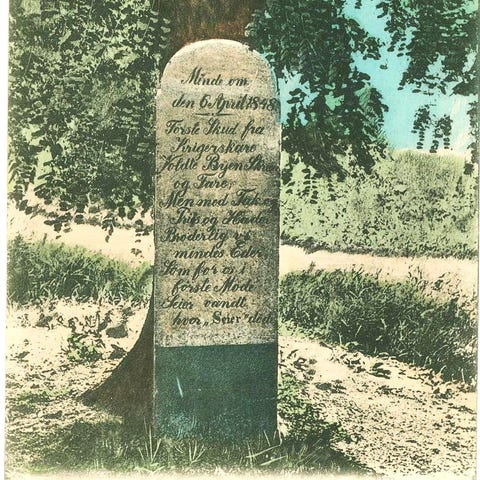 Minde om
den 6 April 1848
Første Skud fra
Krigerskare
Voldte Byen
og Fare,
Men med Tak og
Pris og Hæder
Broderlig vi
mindes Eder
Som for os i
første Møde
Seier vandt
hvor „Seier” døde